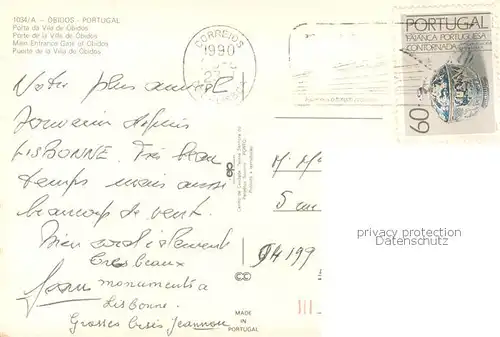 1034/A – ÓBIDOS - PORTUGAL
Porta da Vila de Óbidos
Porte de la Ville de Óbidos
Main Entrance Gate of Óbidos
Puerta de la Villa de Óbidos
CORREIOS
1990
PORTUGAL
FAIANÇA PORTUGUESA
CONTORNADA
60
Notre plus amical
souvenir depuis
LISBONNE. Très beau
temps mais aussi
beaucoup de vent.
Bien cordialement
Très beaux
monuments à
Jean
Lisbonne.
Grosses bises Jeannou
M. M
5 rue
94199
privacy protection
Datenschutz
MADE
IN
PORTUGAL